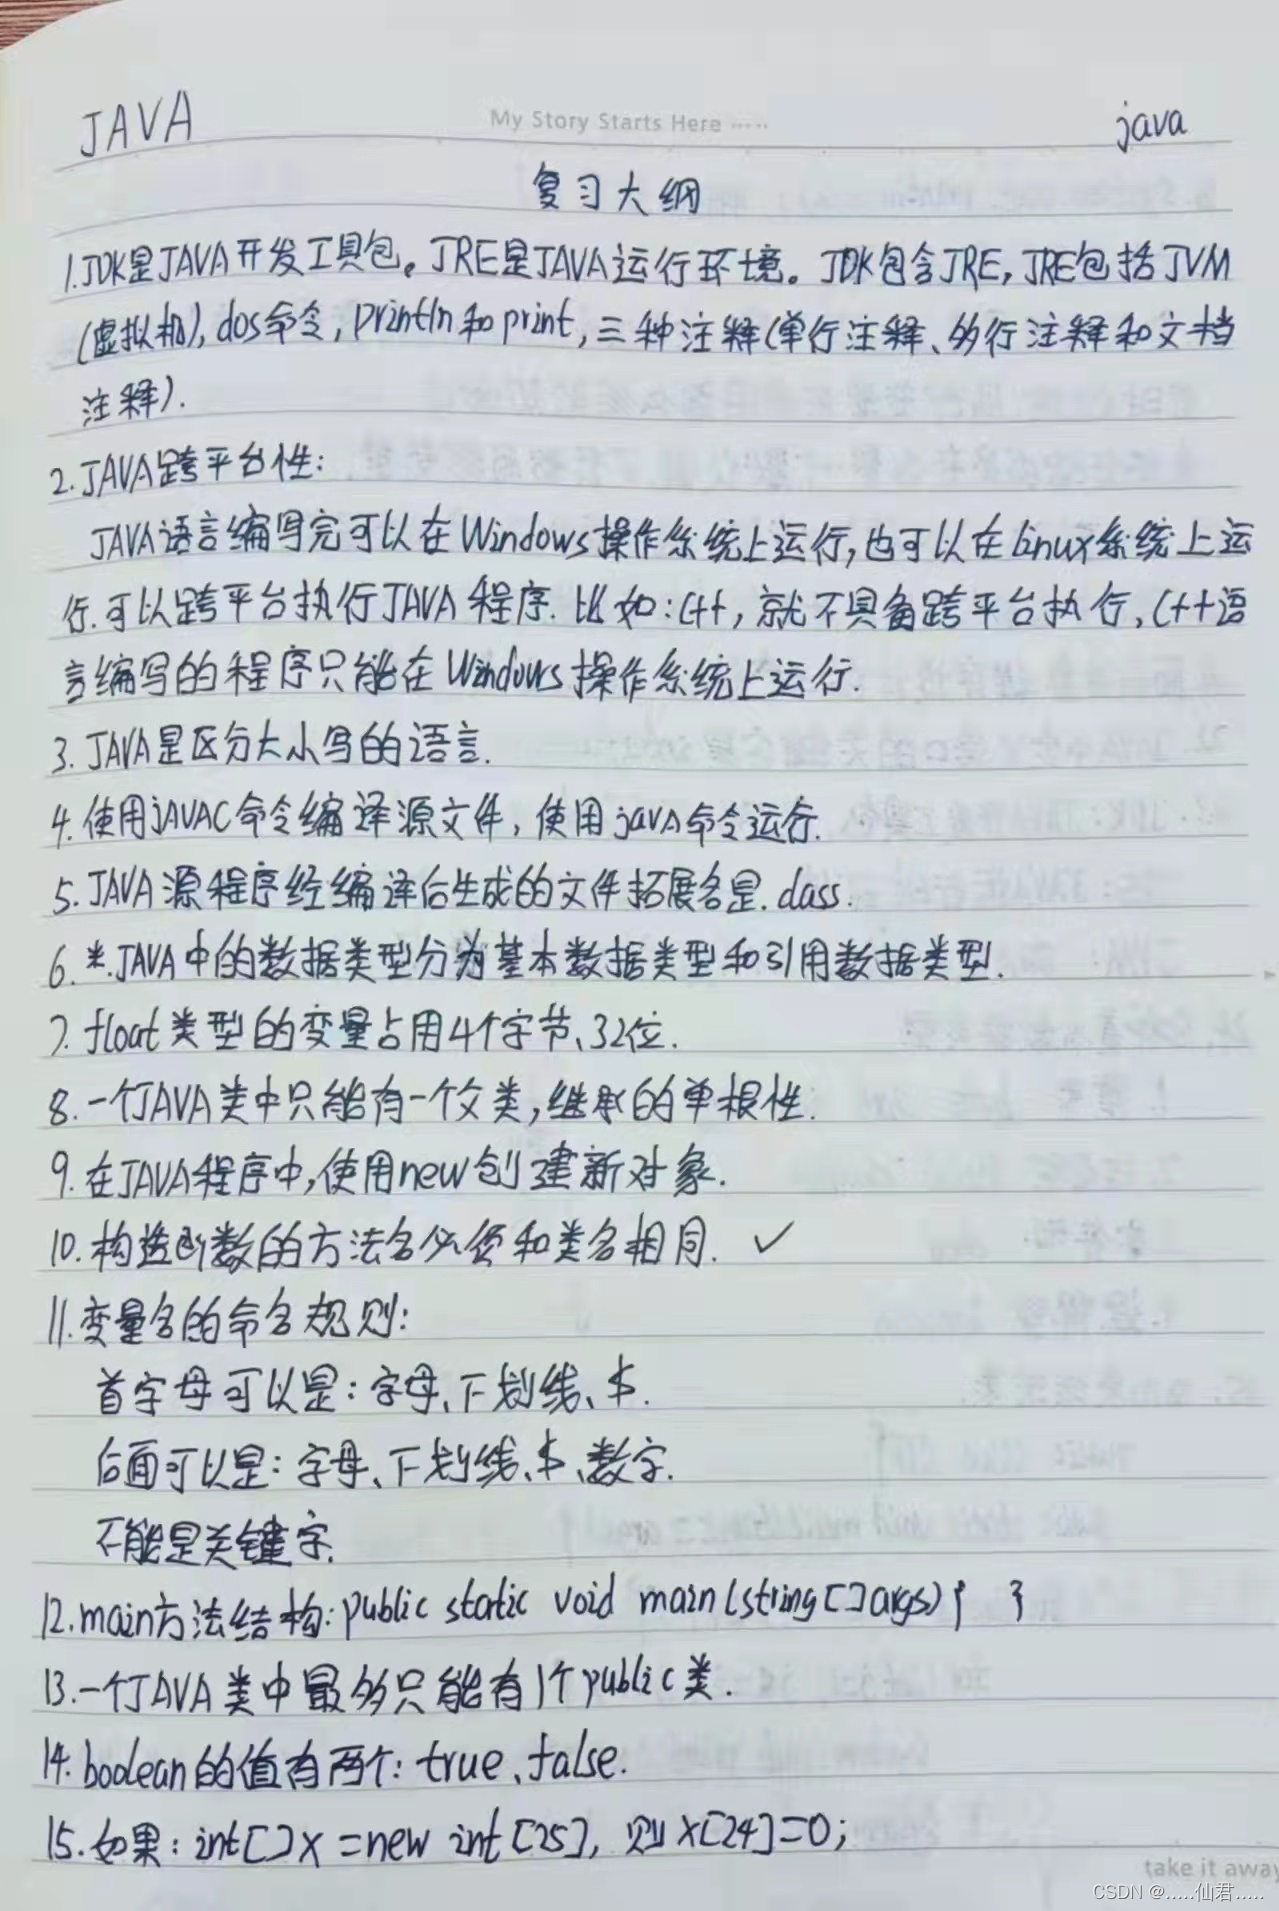 JAVA
My Story Starts Here ·····
java
复习大纲
1.JDK是JAVA开发工具包。JRE是JAVA运行环境。JDK包含JRE,JRE包括JVM
(虚拟机),dos命令,println和print,三种注释(单行注释、多行注释和文档
注释).
2.JAVA跨平台性:
JAVA语言编写完可以在Windows操作系统上运行,也可以在linux系统上运
行.可以跨平台执行JAVA程序.比如:C++,就不具备跨平台执行,C++语
言编写的程序只能在Windows操作系统上运行.
3.JAVA是区分大小写的语言.
4.使用jAVAC命令编译源文件,使用javA命令运行.
5.JAVA源程序经编译后生成的文件拓展名是.class.
6.*.JAVA中的数据类型分为基本数据类型和引用数据类型.
7.float类型的变量占用4个字节、32位.
8.一个JAVA类中只能有一个父类,继承的单根性.
9.在JAVA程序中,使用new创建新对象.
10.构造函数的方法名必须和类名相同. ✓
11.变量名的命名规则:
首字母可以是:字母、下划线、$.
后面可以是:字母、下划线、$、数字.
不能是关键字.
12.main方法结构:public static void main(string[]args){ }
13.一个JAVA类中最多只能有1个public类.
14.boolean的值有两个:true、false.
15.如果:int[]x=new int[25],则x[24]=0;
take it away
CSDN @.....仙君.....